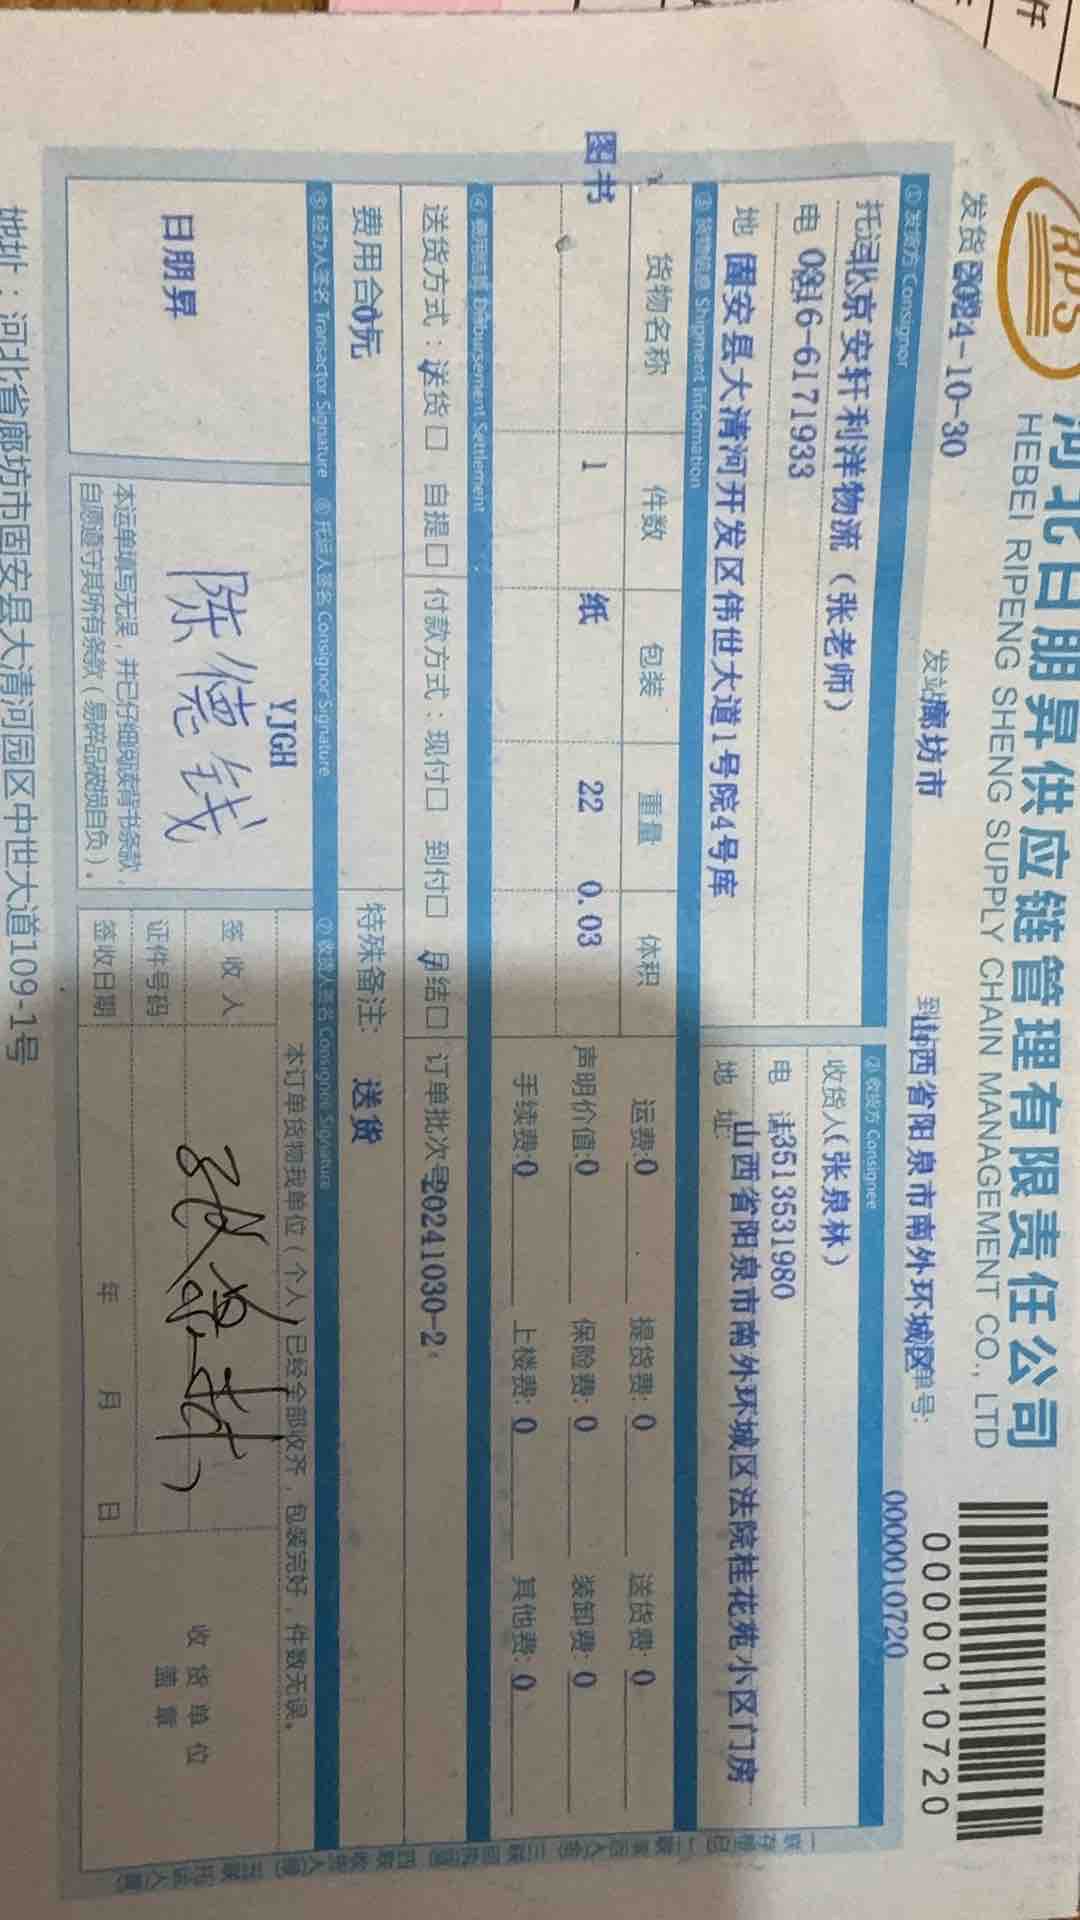 RPS
河北日朋昇供应链管理有限责任公司
HEBEI RIPENG SHENG SUPPLY CHAIN MANAGEMENT CO., LTD
0000010720
发货 2024-10-30
发站廊坊市
到站山西省阳泉市南外环城区 单号:
0000010720
① 发货方 Consignor
② 收货方 Consignee
托运 北京安轩利洋物流（张老师）
收货人(张泉林)
电 0316-6171933
电 话13513531980
地 固安县大清河开发区伟世大道1号院4号库
地 址: 山西省阳泉市南外环城区法院桂花苑小区门房
③ 货物信息 Shipment Information
货物名称 件数 包装 重量 体积
运费:0 提货费: 0 送货费: 0
图书 1 纸 22 0.03
声明价值:0 保险费: 0 装卸费: 0
手续费:0 上楼费: 0 其他费: 0
④ 费用结算 Disbursement Settlement
送货方式：送货□ 自提□ 付款方式：现付□ 到付□ 月结□ 订单批次号20241030-2
费用合0元
特殊备注: 送货
⑤ 经办人签名 Transactor Signature
⑥ 托运人签名 Consignor Signature
⑦ 收货人签名 Consignee Signature
日朋昇
YJGH
陈德钱
本运单填写无误，并已仔细阅读背书条款，
自愿遵守其所有条款（易碎品破损自负）。
本订单货物我单位（个人）已经全部收齐，包装完好，件数无误。
签收人
证件号码
签收日期 年 月 日
收货单位
盖章
地址：河北省廊坊市固安县大清河园区中世大道109-1号